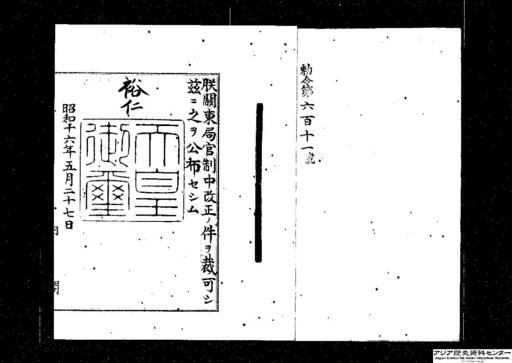 勅令第六百十一號
朕關東局官制中改正ノ件ヲ裁可シ
茲ニ之ヲ公布セシム
裕仁
天皇御璽
昭和十六年五月二十七日
アジア歴史資料センター
Japan Center for Asian Historical Records